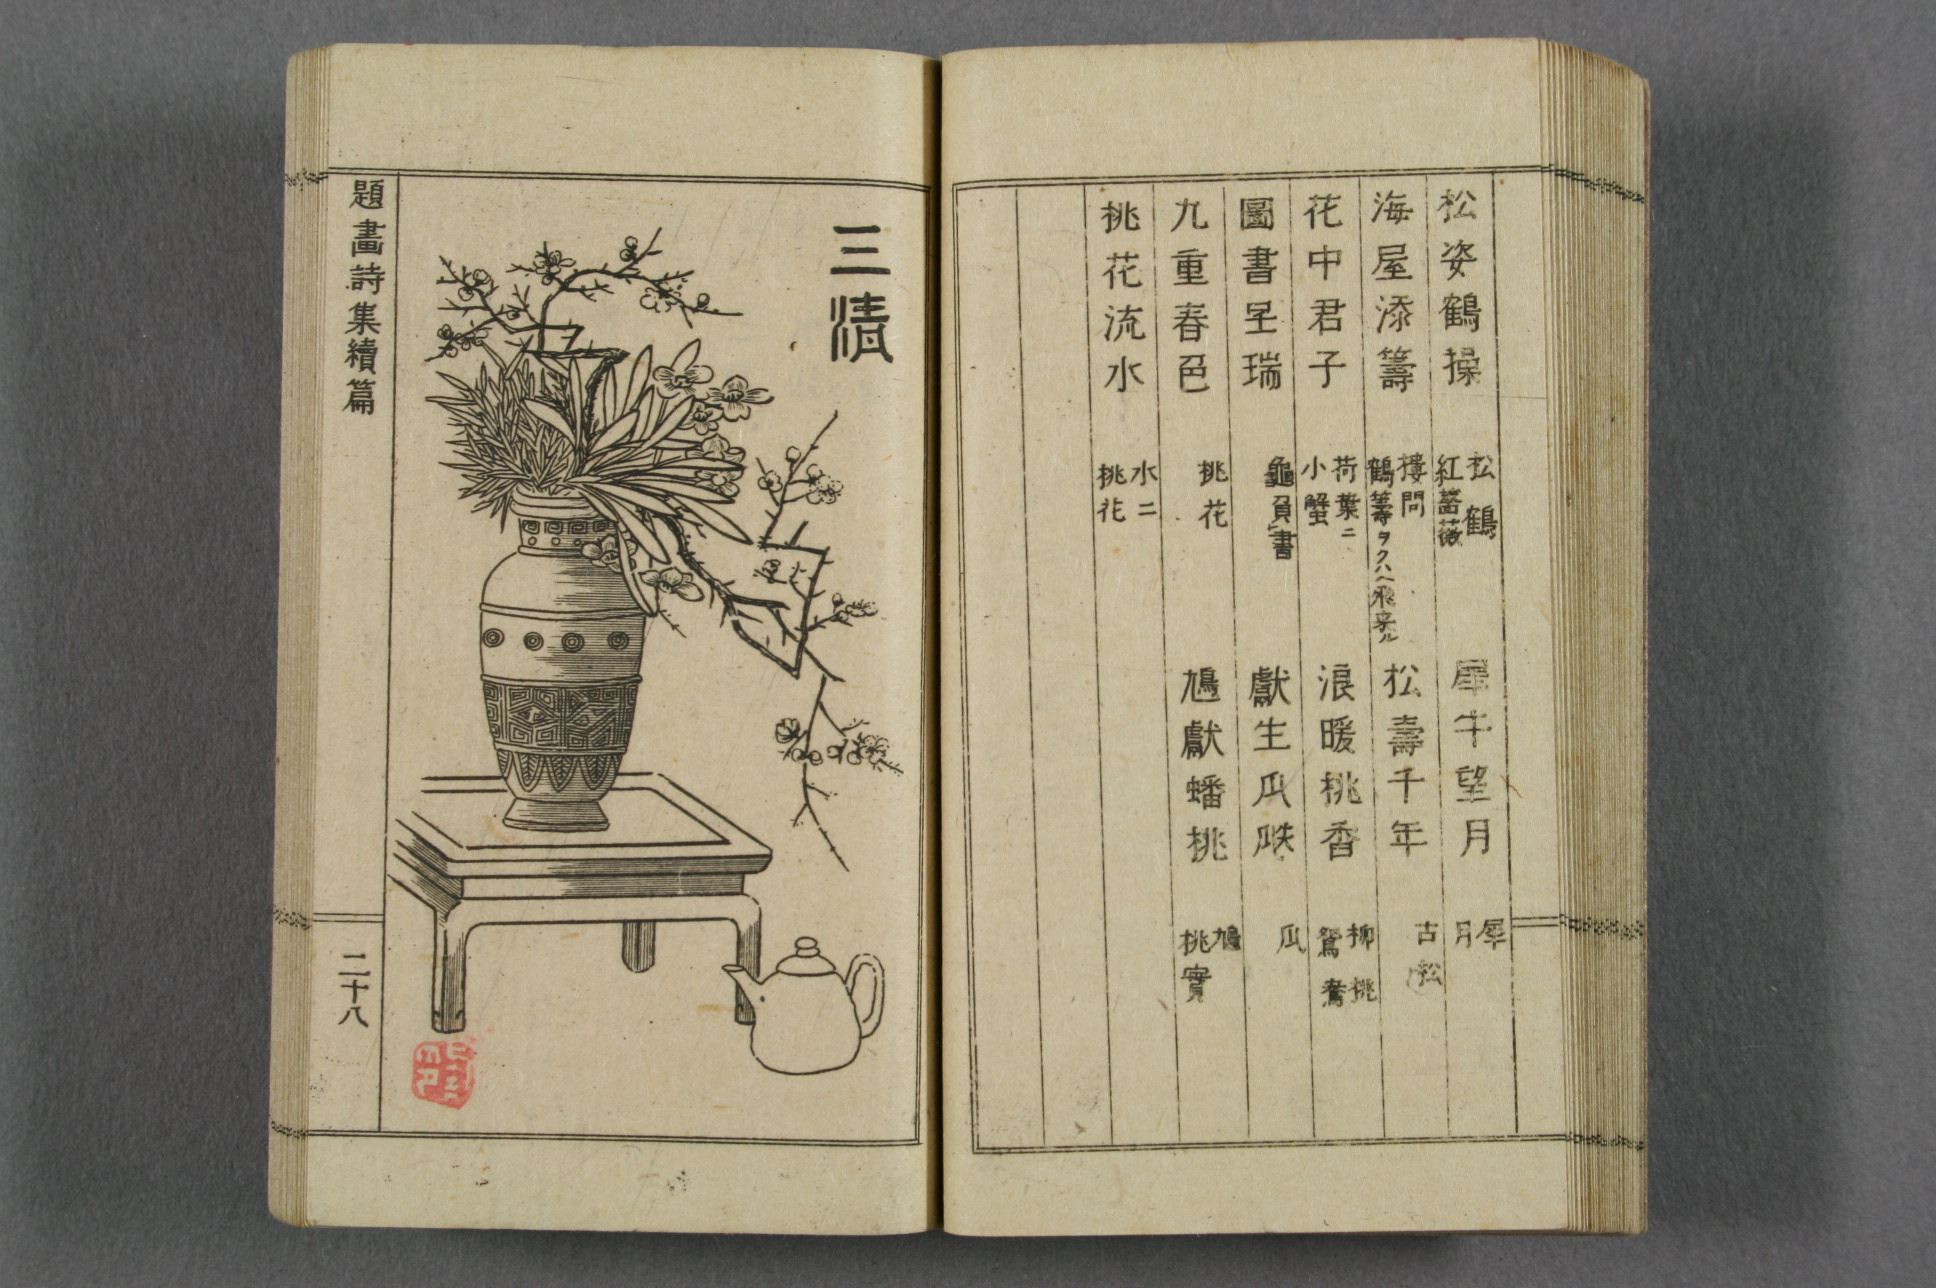 松姿鶴操
松鶴
紅薔薇
犀牛望月
犀
月
海屋添籌
樓閣
鶴籌ヲクハヘ飛来ル
松壽千年
古松
花中君子
荷葉ニ
小蟹
浪暖桃香
柳桃
鴛鴦
圖書呈瑞
龜負書
獻生瓜瓞
瓜
九重春色
桃花
鳩獻蟠桃
鳩
桃實
桃花流水
水ニ
桃花
三清
題畫詩集續篇
二十八